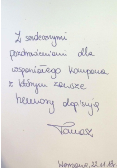 Z serdecznymi
pozdrowieniami dla
wspaniałego kompana
z którym zawsze
humory dopisują
Tomasz
Warszawa, 22.11.18r.